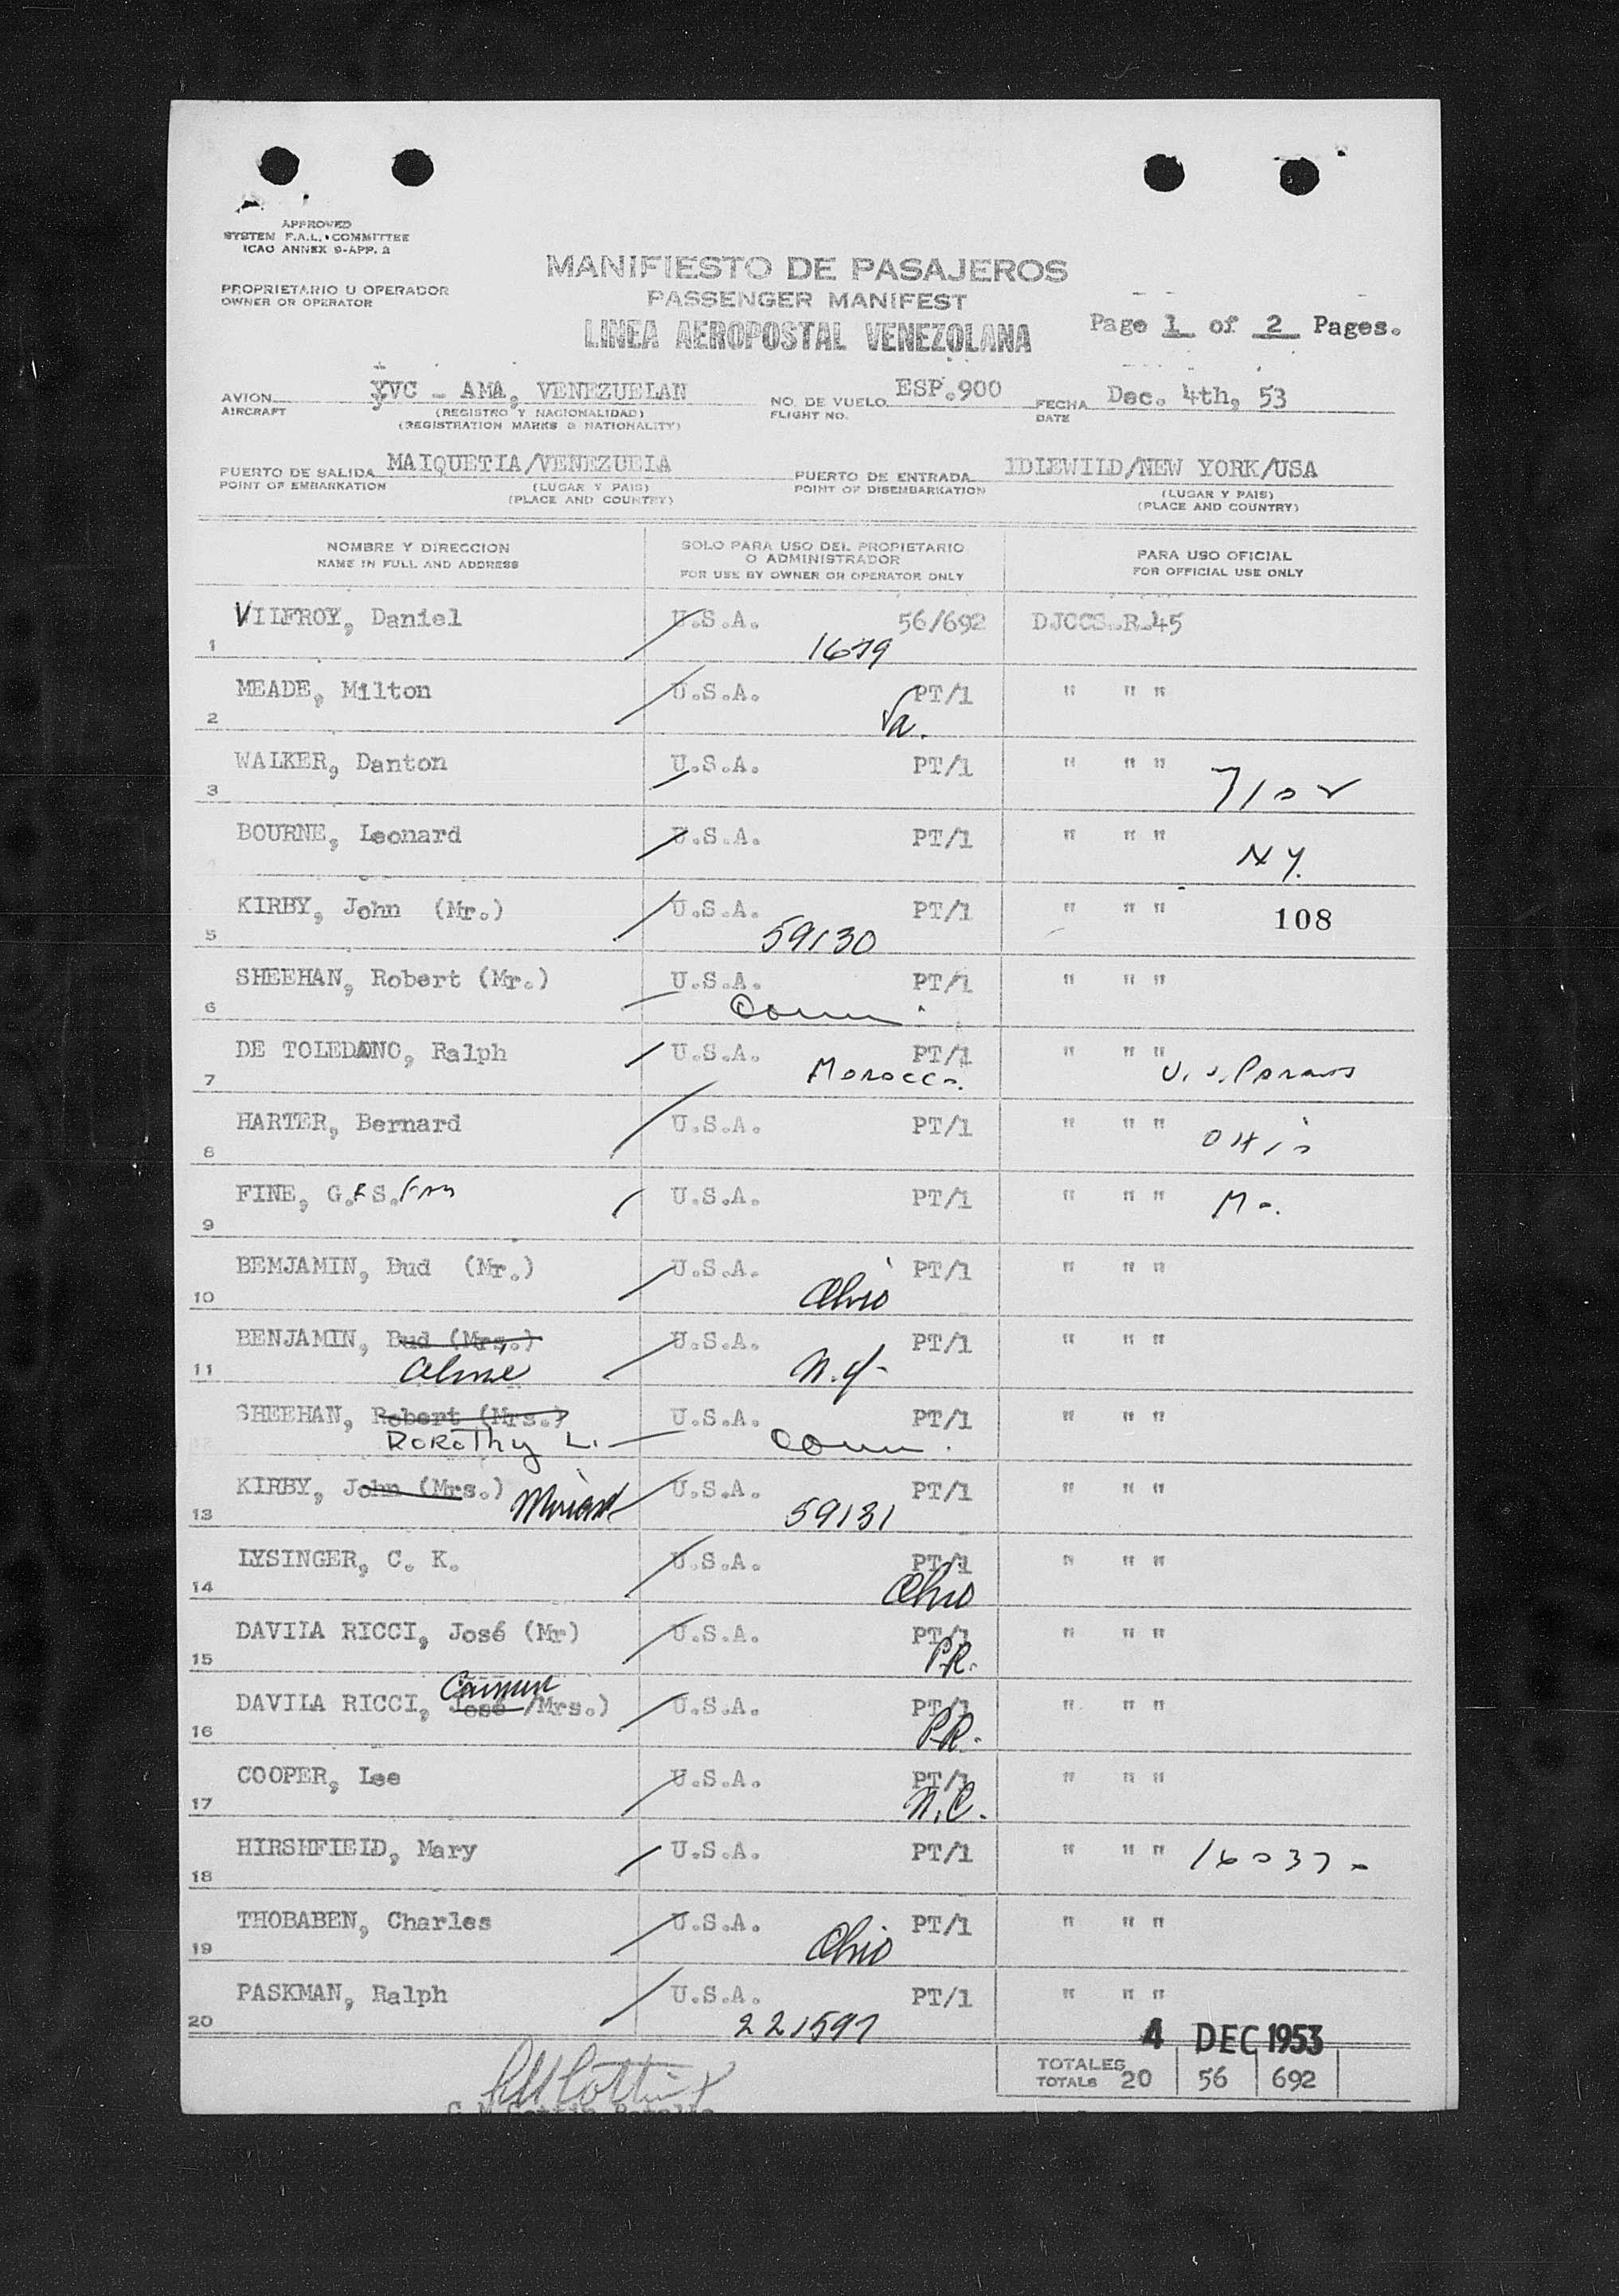 APPROVED
SYSTEM F.A.L. COMMITTEE
ICAO ANNEX 9-APP. 2
MANIFIESTO DE PASAJEROS
PROPRIETARIO U OPERADOR
OWNER OR OPERATOR
PASSENGER MANIFEST
LINEA AEROPOSTAL VENEZOLANA
Page 1 of 2 Pages.
AVION YVC - AMA, VENEZUELAN NO. DE VUELO ESP.900 FECHA Dec. 4th, 53
AIRCRAFT (REGISTRO Y NACIONALIDAD) FLIGHT NO. DATE
(REGISTRATION MARKS & NATIONALITY)
PUERTO DE SALIDA MAIQUETIA/VENEZUELA PUERTO DE ENTRADA IDLEWILD/NEW YORK/USA
POINT OF EMBARKATION (LUGAR Y PAIS) POINT OF DISEMBARKATION (LUGAR Y PAIS)
(PLACE AND COUNTRY) (PLACE AND COUNTRY)
NOMBRE Y DIRECCION SOLO PARA USO DEL PROPIETARIO O ADMINISTRADOR PARA USO OFICIAL
NAME IN FULL AND ADDRESS FOR USE BY OWNER OR OPERATOR ONLY FOR OFFICIAL USE ONLY
VILFROY, Daniel U.S.A. 56/692 DJCCS.R.45
1 1679
MEADE, Milton U.S.A. PT/1 " " "
2 Va.
WALKER, Danton U.S.A. PT/1 " " "
3
BOURNE, Leonard U.S.A. PT/1 " " "
NY.
KIRBY, John (Mr.) U.S.A. PT/1 " " " 108
5 59130
SHEEHAN, Robert (Mr.) U.S.A. PT/1 " " "
6 Conn.
DE TOLEDANO, Ralph U.S.A. PT/1 " " "
7 Morocco.
HARTER, Bernard U.S.A. PT/1 " " "
8 OHIO
FINE, G. S. U.S.A. PT/1 " " "
9 Mo.
BEMJAMIN, Bud (Mr.) U.S.A. PT/1 " " "
10 Ohio
BENJAMIN, Bud (Mrs.) U.S.A. PT/1 " " "
11 N.Y.
SHEEHAN, Robert (Mrs.) U.S.A. PT/1 " " "
12 DOROTHY L. Conn.
KIRBY, John (Mrs.) U.S.A. PT/1 " " "
13 59131
LYSINGER, C. K. U.S.A. PT/1 " " "
14 Ohio
DAVILA RICCI, José (Mr) U.S.A. PT/1 " " "
15 P.R.
Carmen
DAVILA RICCI, José /Mrs.) U.S.A. PT/1 " " "
16 P.R.
COOPER, Lee U.S.A. PT/1 " " "
17 N.C.
HIRSHFIELD, Mary U.S.A. PT/1 " " " 160370
18
THOBABEN, Charles U.S.A. PT/1 " " "
19 Ohio
PASKMAN, Ralph U.S.A. PT/1 " " "
20 221597
4 DEC 1953
TOTALES
TOTALS 20 56 692